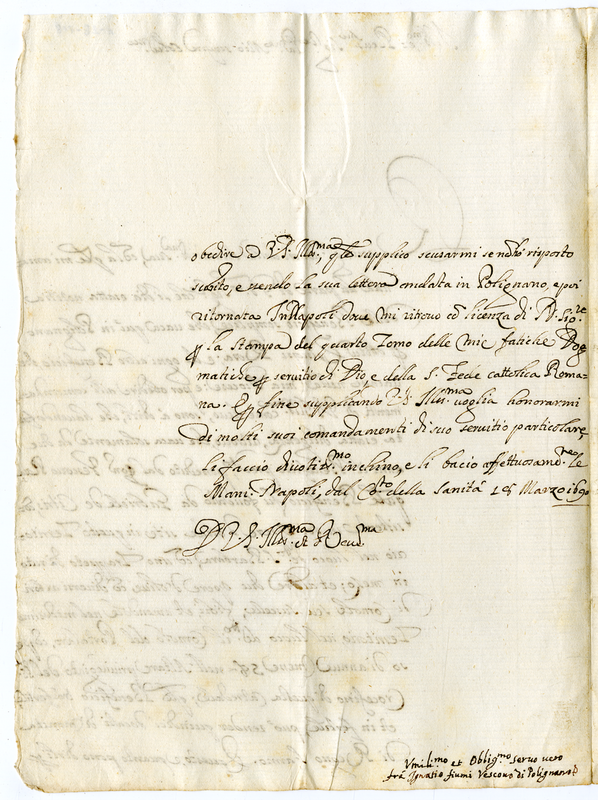 obedire à V. S. Ill.ma, q.le supplico scusarmi se non hò risposto
subito, essendo la sua lettera andata in Polignano, e poi
ritornata In Napoli dove mi ritrovo cō licenza di N. Sig.re
ꝑ la stampa del quarto Tomo delle mie fatiche Dog
matiche ꝑ servitio di Dio, e della S. Fede cattolica Roma-
na. E ꝑ fine supplicando V. S. Ill.ma voglia honorarmi
di molti suoi comandamenti di suo servitio particolare,
li faccio divotiss.mo inchino, e li bacio affettuosam.te le
Mani. Napoli, dal C.to della Sanità Marzo 169
D V. S. Ill.ma et Reud.ma
Vmiliss.mo et Oblig.mo servo vero
frà Ignatio fiumi Vescovo di Polignano